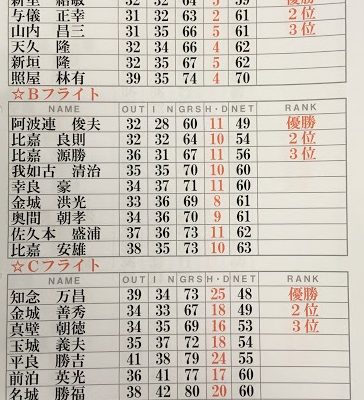 新里 紹敏 32 32 64 5 59 優勝
与儀 正幸 31 32 63 2 61 2位
山内 昌三 31 35 66 5 61 3位
天久 隆 32 34 66 4 62
新垣 隆 32 35 67 5 62
照屋 林有 39 35 74 4 70
☆Bフライト
NAME OUT I N GRS H・D NET RANK
阿波連 俊夫 32 28 60 11 49 優勝
比嘉 良則 32 32 64 10 54 2位
比嘉 源勝 36 31 67 11 56 3位
我如古 清治 35 35 70 10 60
幸良 豪 34 37 71 11 60
金城 洪光 33 36 69 8 61
奥間 朝孝 34 36 70 9 61
佐久本 盛浦 37 36 73 11 62
比嘉 安雄 38 35 73 10 63
☆Cフライト
NAME OUT I N GRS H・D NET RANK
知念 万昌 39 34 73 25 48 優勝
金城 善秀 34 33 67 18 49 2位
真壁 朝徳 34 35 69 16 53 3位
玉城 義夫 35 37 72 18 54
平良 勝吉 41 38 79 24 55
前泊 英光 36 41 77 17 60
名城 勝福 38 42 80 20 60